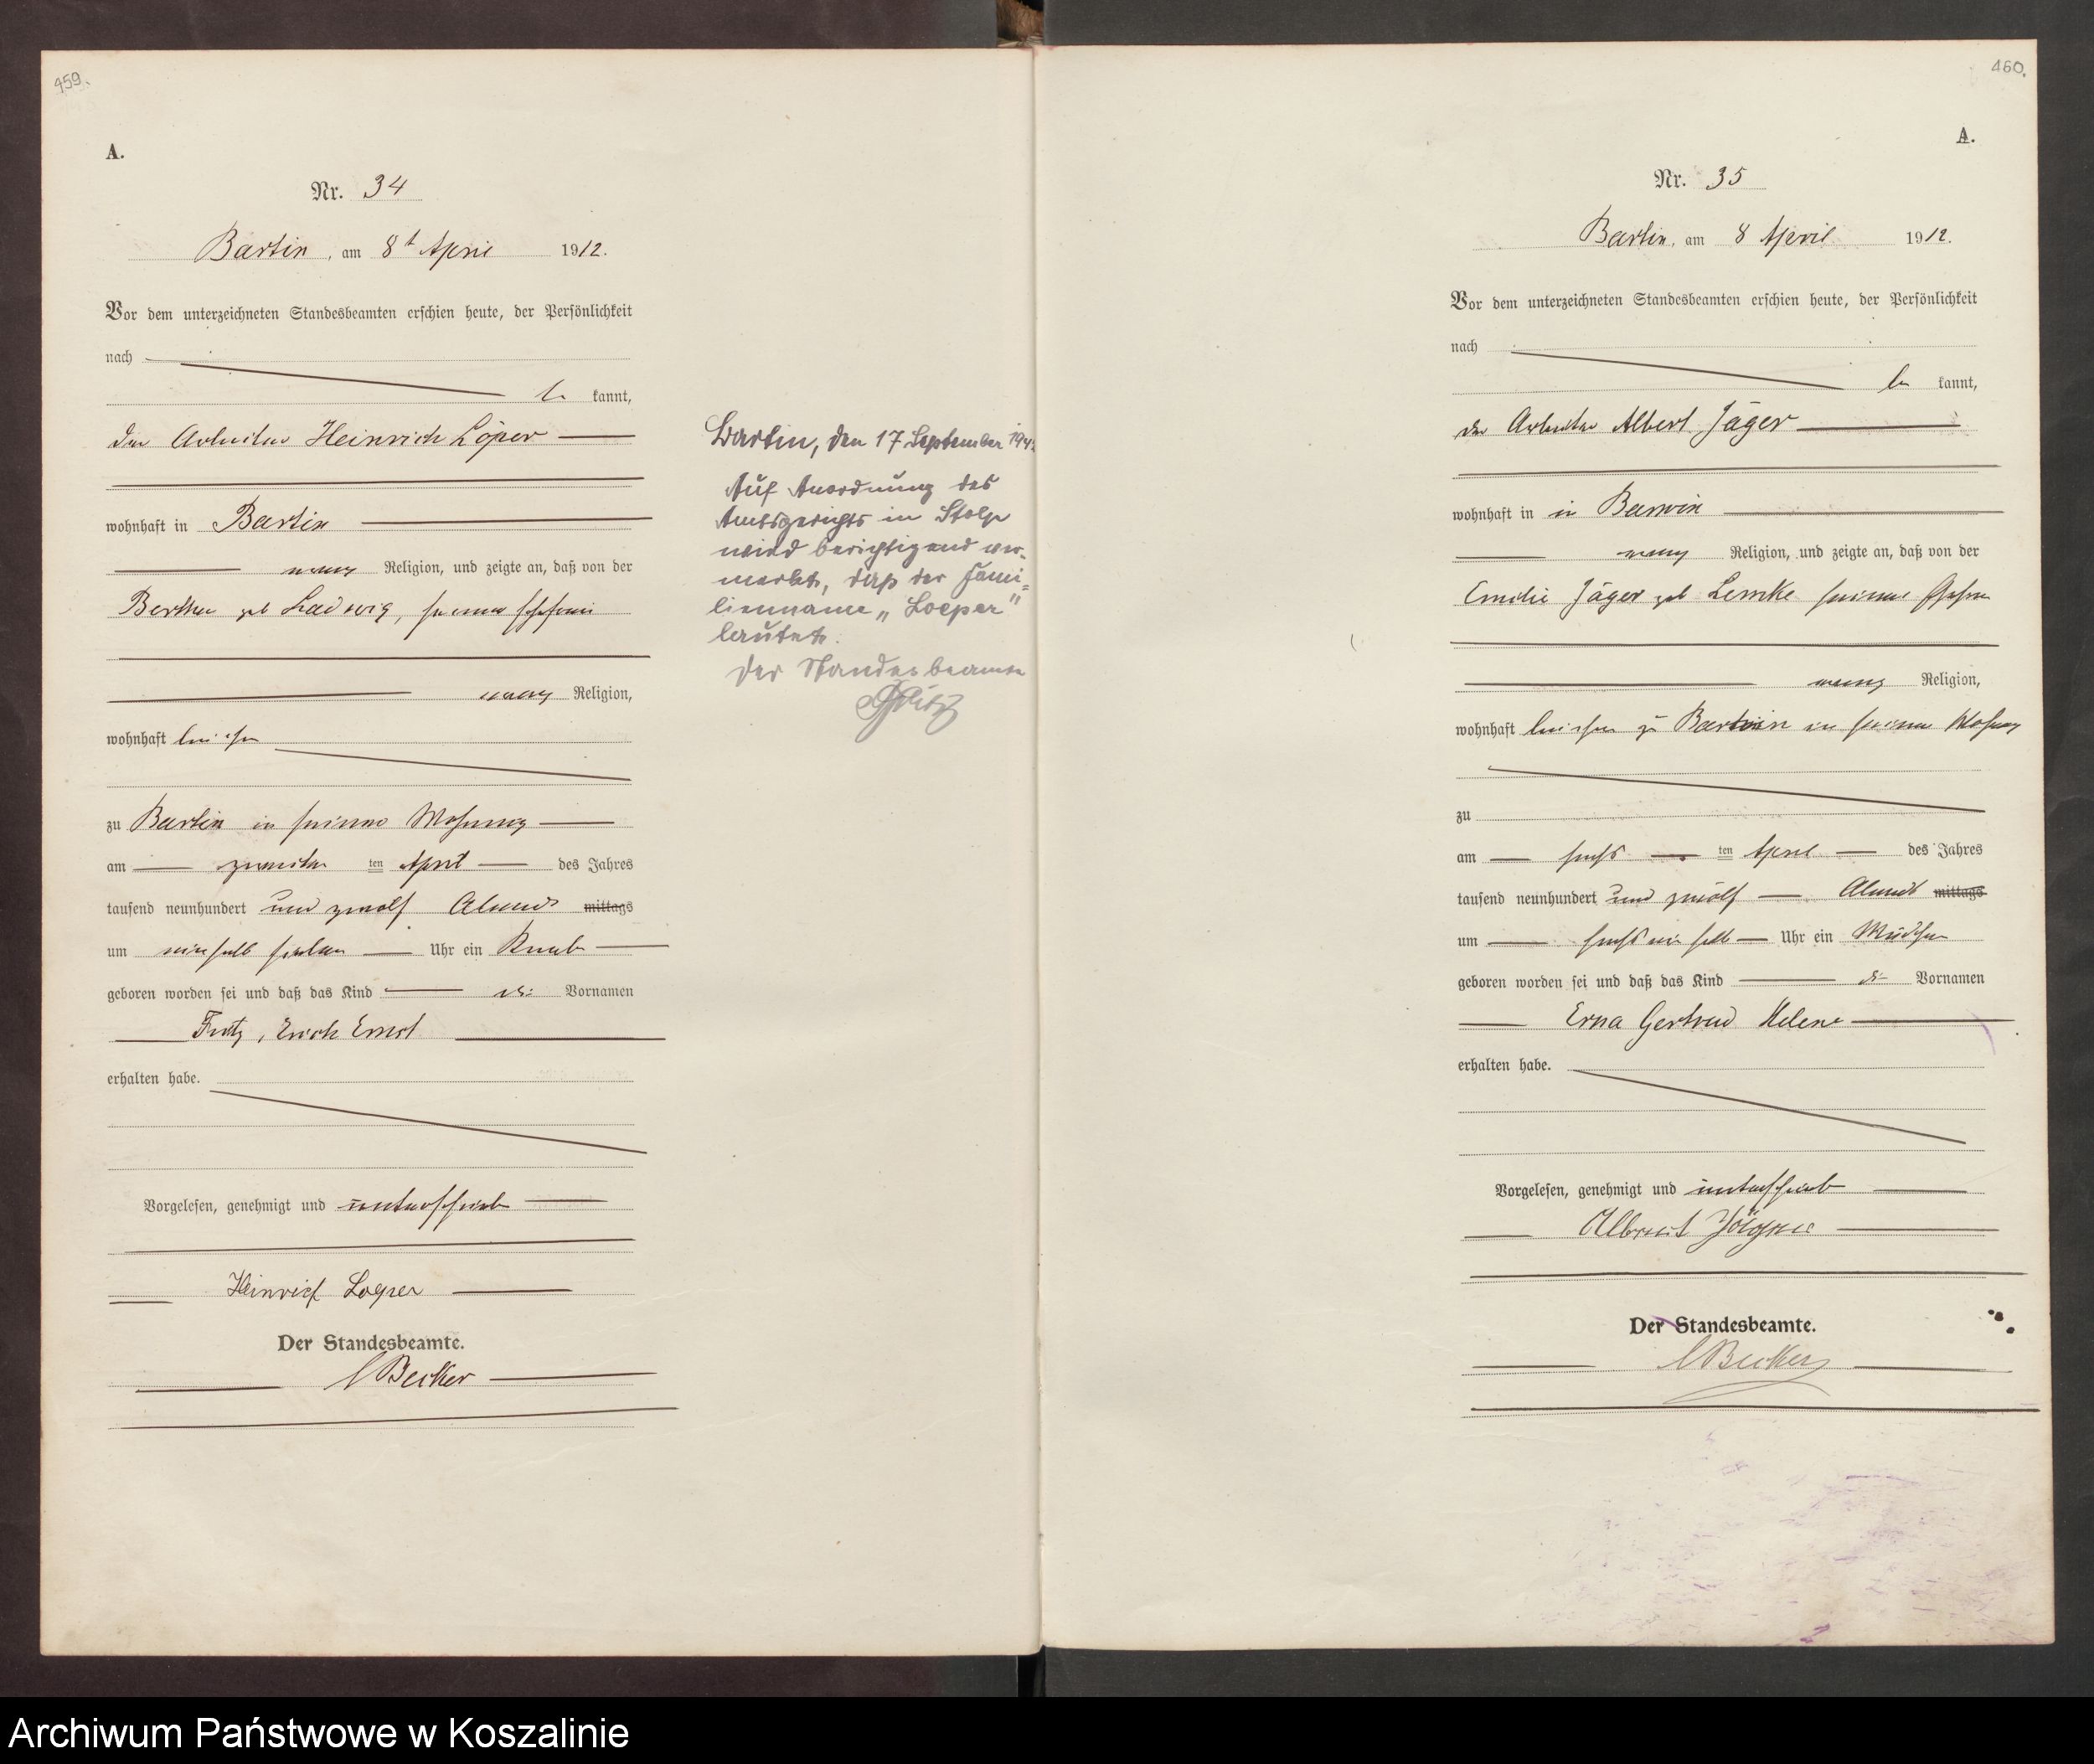 459.
A.
Nr. 34
Bartin, am 8t April 1912.
Vor dem unterzeichneten Standesbeamten erschien heute, der Persönlichkeit
nach
be kannt,
der Arbeiter Heinrich Löper
wohnhaft in Bartin
evang Religion, und zeigte an, daß von der
Bertha geb Ladwig, seiner Ehefrau
evang Religion,
wohnhaft bei ihm
zu Bartin in seiner Wohnung
am zweiten ten April des Jahres
tausend neunhundert und zwölf Abends mittags
um einhalb sieben Uhr ein Knabe
geboren worden sei und daß das Kind die Vornamen
Fritz, Erich Ernst
erhalten habe.
Vorgelesen, genehmigt und unterschrieb
Heinrich Loeper
Der Standesbeamte.
Becker
Bartin, den 17 September 194
Auf Anordnung des
Amtsgerichts in Stolp
wird berichtigend ver-
merkt, daß der Fami-
lienname „Loeper"
lautet.
Der Standesbeamte
460.
A.
Nr. 35
Bartin, am 8 April 1912.
Vor dem unterzeichneten Standesbeamten erschien heute, der Persönlichkeit
nach
be kannt,
der Arbeiter Albert Jäger
wohnhaft in in Barvin
evang Religion, und zeigte an, daß von der
Emilie Jäger geb Lemke seiner Ehefrau
evang Religion,
wohnhaft bei ihm zu Barvin in seiner Wohnung
zu
am sechs ten April des Jahres
tausend neunhundert und zwölf Abends mittags
um sechs ein halb Uhr ein Mädchen
geboren worden sei und daß das Kind die Vornamen
Erna Gertrud Helene
erhalten habe.
Vorgelesen, genehmigt und unterschrieb
Jäger
Der Standesbeamte.
Becker
Archiwum Państwowe w Koszalinie